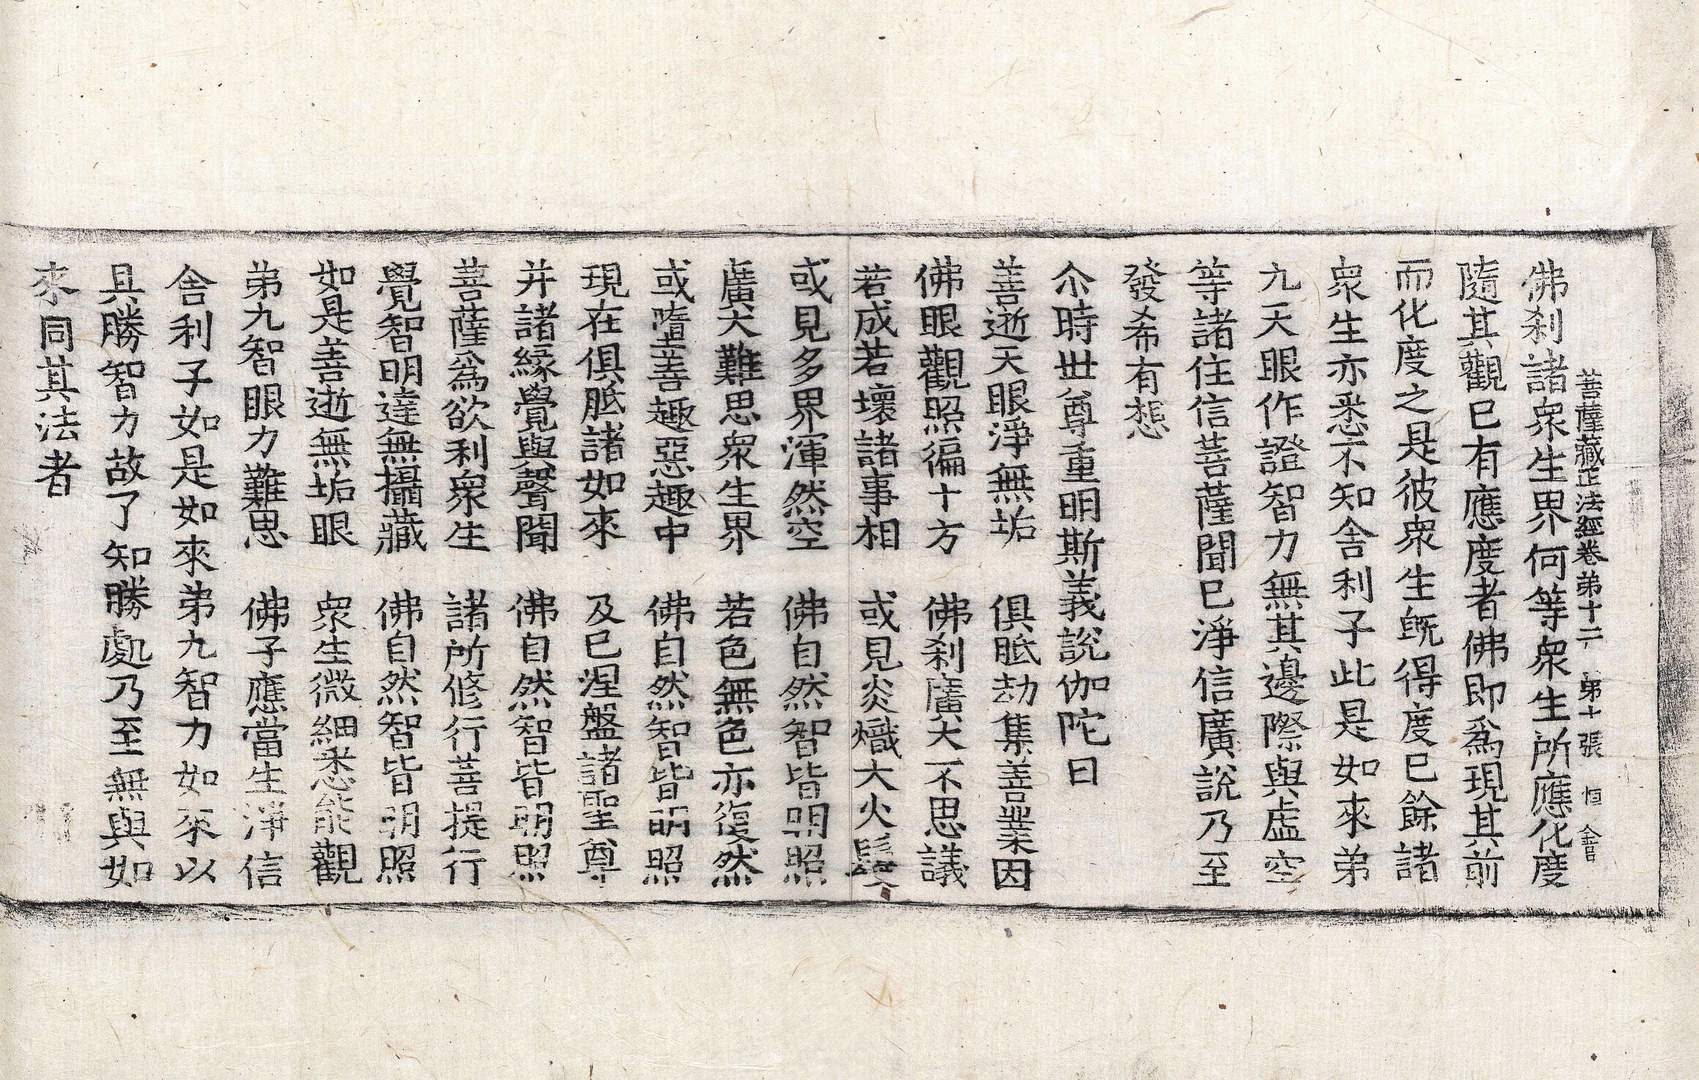 菩薩藏正法經卷第十二 第十張 恒
佛刹諸衆生界何等衆生所應化度
隨其觀已有應度者佛即爲現其前
而化度之是彼衆生旣得度已餘諸
衆生亦悉不知舍利子此是如來弟
九天眼作證智力無其邊際與虛空
等諸住信菩薩聞已淨信廣說乃至
發希有想
尒時世尊重明斯義說伽陀曰
善逝天眼淨無垢 俱胝劫集善業因
佛眼觀照徧十方 佛刹廣大不思議
若成若壞諸事相 或見炎熾大火
或見多界渾然空 佛自然智皆明照
廣大難思衆生界 若色無色亦復然
或墮善趣惡趣中 佛自然智皆明照
現在俱胝諸如來 及已涅盤諸聖尊
并諸緣覺與聲聞 佛自然智皆明照
菩薩爲欲利衆生 諸所修行菩提行
覺智明達無攝藏 佛自然智皆明照
如是善逝無垢眼 衆生微細悉能觀
弟九智眼力難思 佛子應當生淨信
舍利子如是如來弟九智力如來以
具勝智力故了知勝處乃至無與如
來同其法者